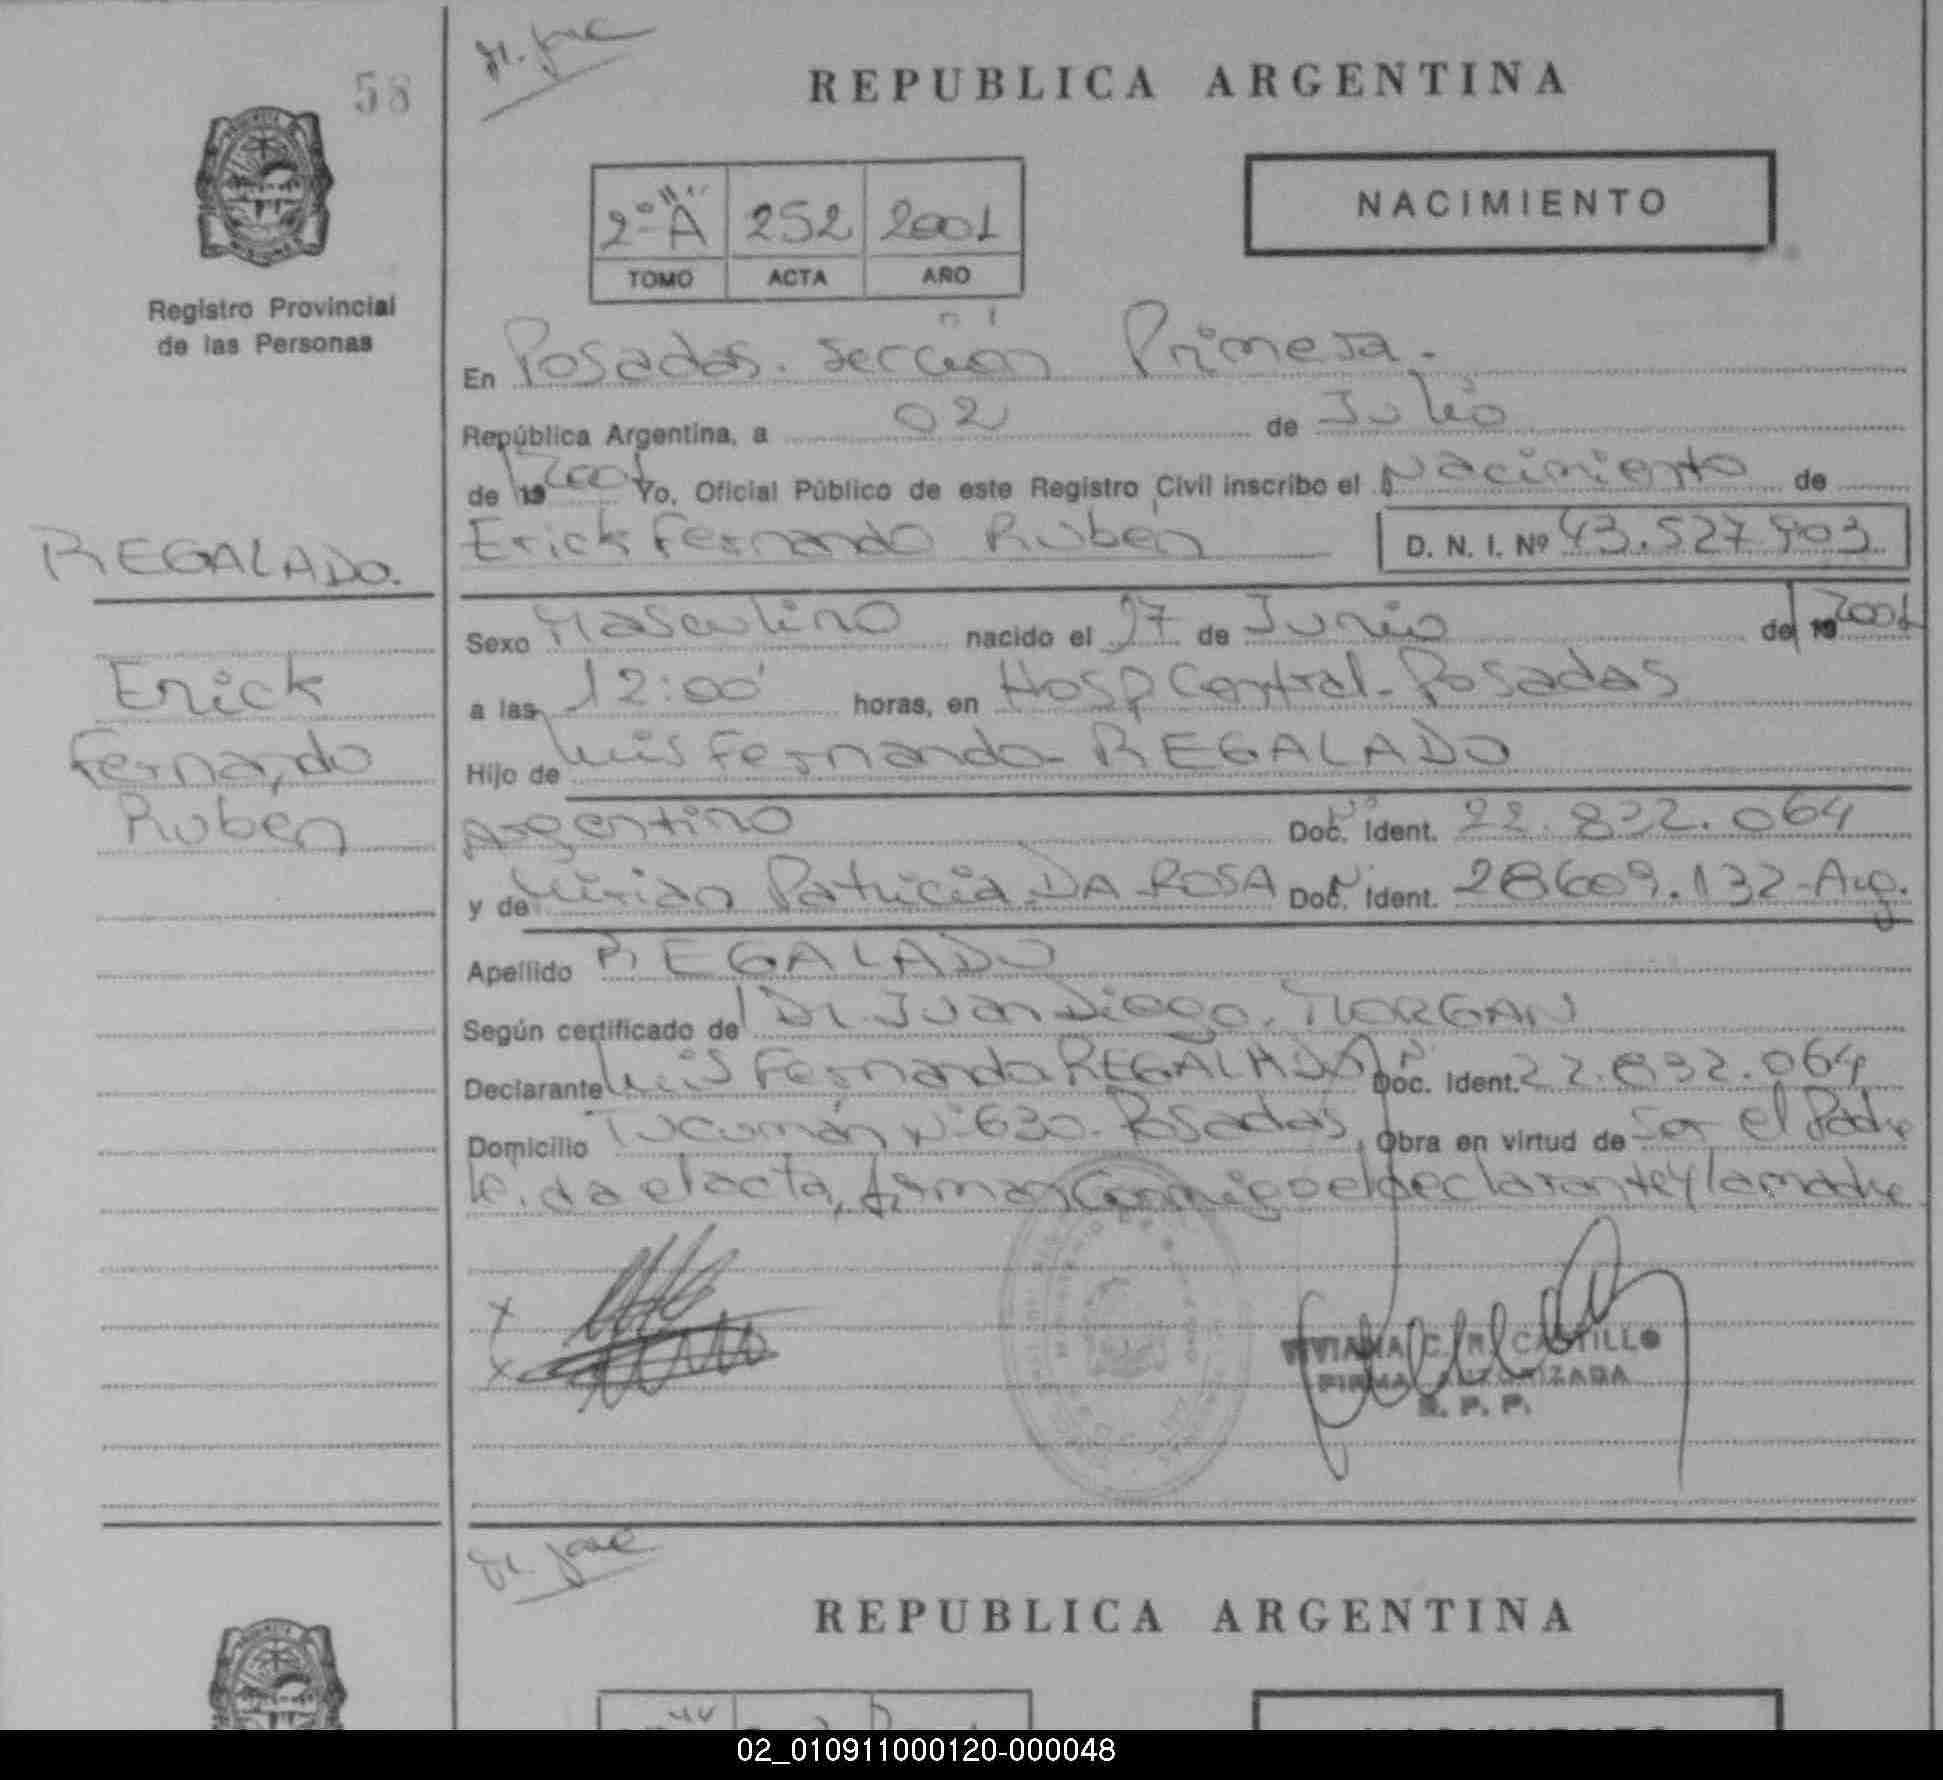 58
REPUBLICA ARGENTINA
NACIMIENTO
2º "A" 252 2001
TOMO ACTA AÑO
Registro Provincial
de las Personas
En Posadas. Sección Primera.
República Argentina, a 02 de Julio
de 19 2001 Yo, Oficial Público de este Registro Civil inscribo el Nacimiento de
Erick Fernando Rubén D. N. I. Nº 43.527.903
REGALADO.
Erick
Fernando
Rubén
Sexo Masculino nacido el 27 de Junio de 19 2001
a las 12:00' horas, en Hosp Central - Posadas
Hijo de Luis Fernando - REGALADO
Argentino Doc. Ident. 22.832.064
y de Mirian Patricia DA ROSA Doc. Ident. 28609.132-Arg.
Apellido REGALADO
Según certificado de Dr. Juan Diego. MORGAN
Declarante Luis Fernando REGALADO Doc. Ident. 22.832.064
Domicilio Tucumán Nº 630- Posadas, Obra en virtud de ser el Padre
leida el acta, firman conmigo el declarante y la madre
x
x
VIVIANA C. R. CASTILLO
FIRMA AUTORIZADA
R. P. P.
REPUBLICA ARGENTINA
02_010911000120-000048